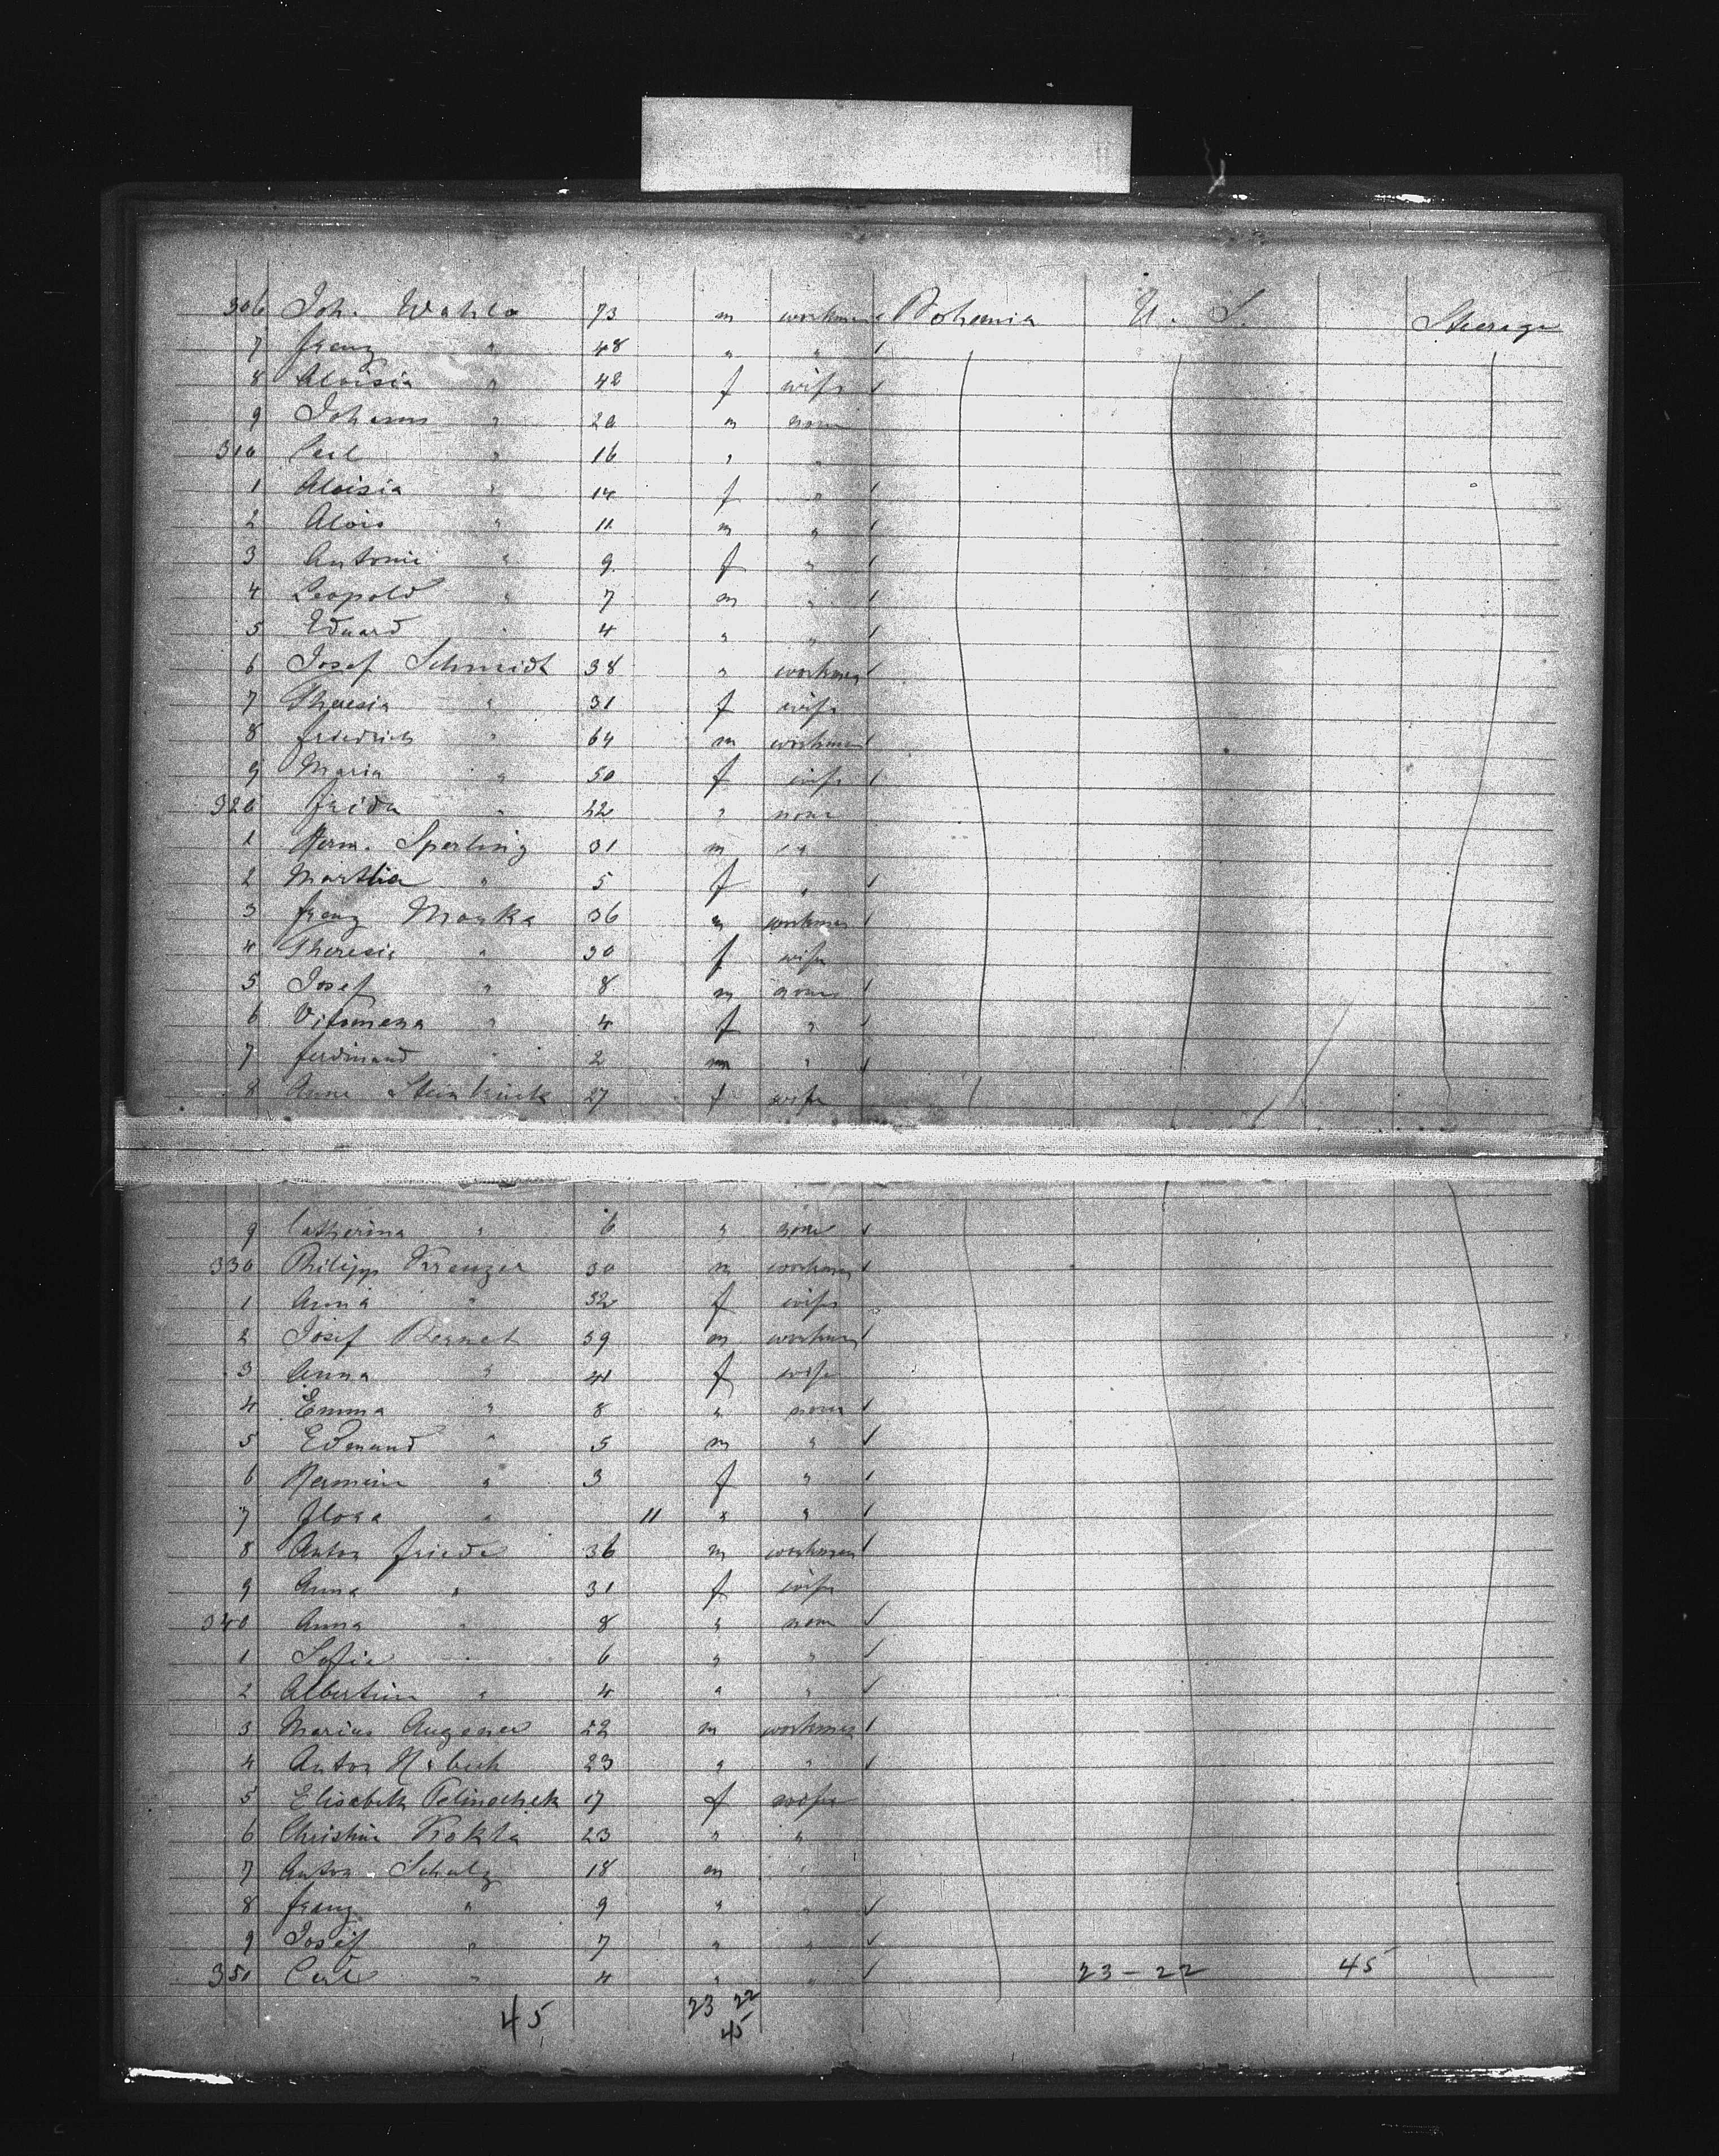 306 Joh. Wahla 73 m workman Bohemia U. S. Steerage
7 Franz " 48 " " ✓
8 Aloisia " 42 f wife ✓
9 Johann " 20 m none
310 Carl " 16 " "
1 Aloisia " 14 f " ✓
2 Alois " 11 m " ✓
3 Antonie " 9 f " ✓
4 Leopold " 7 m " ✓
5 Eduard " 4 " " ✓
6 Josef Schmidt 38 " workman ✓
7 Theresia " 31 f wife
8 Friedrich " 64 m workman ✓
9 Maria " 50 f wife ✓
320 Frieda " 22 " none
1 Herm. Sperling 31 m "
2 Martha " 5 f " ✓
3 Franz Maoka 36 m workman ✓
4 Theresia " 30 f wife
5 Josef " 8 m none ✓
6 Vifomena " 4 f " ✓
7 Ferdinand " 2 m " ✓
8 Anna 27 f wife
9 Catherina " 6 " none ✓
330 Philipp Kreuzer 30 m workman ✓
1 Anna " 32 f wife
2 Josef 39 m workman ✓
3 Anna " 41 f wife
4 Emma " 8 " none ✓
5 Edmund " 5 m " ✓
6 Hermein " 3 f " ✓
7 Flora " 11 " " ✓
8 Anton Friede 36 m workman ✓
9 Anna " 31 f wife
340 Anna " 8 " none ✓
1 Sofie " 6 " " ✓
2 Albertine " 4 " " ✓
3 Marius Augener 22 m workman ✓
4 Anton 23 " " ✓
5 Elisabeth 17 f wife
6 Christine Kokta 23 " "
7 Anton Schulz 18 m "
8 Franz " 9 " " ✓
9 Josef " 7 " " ✓
350 Carl " 4 " " ✓ 23-22 45
45 23 22
45